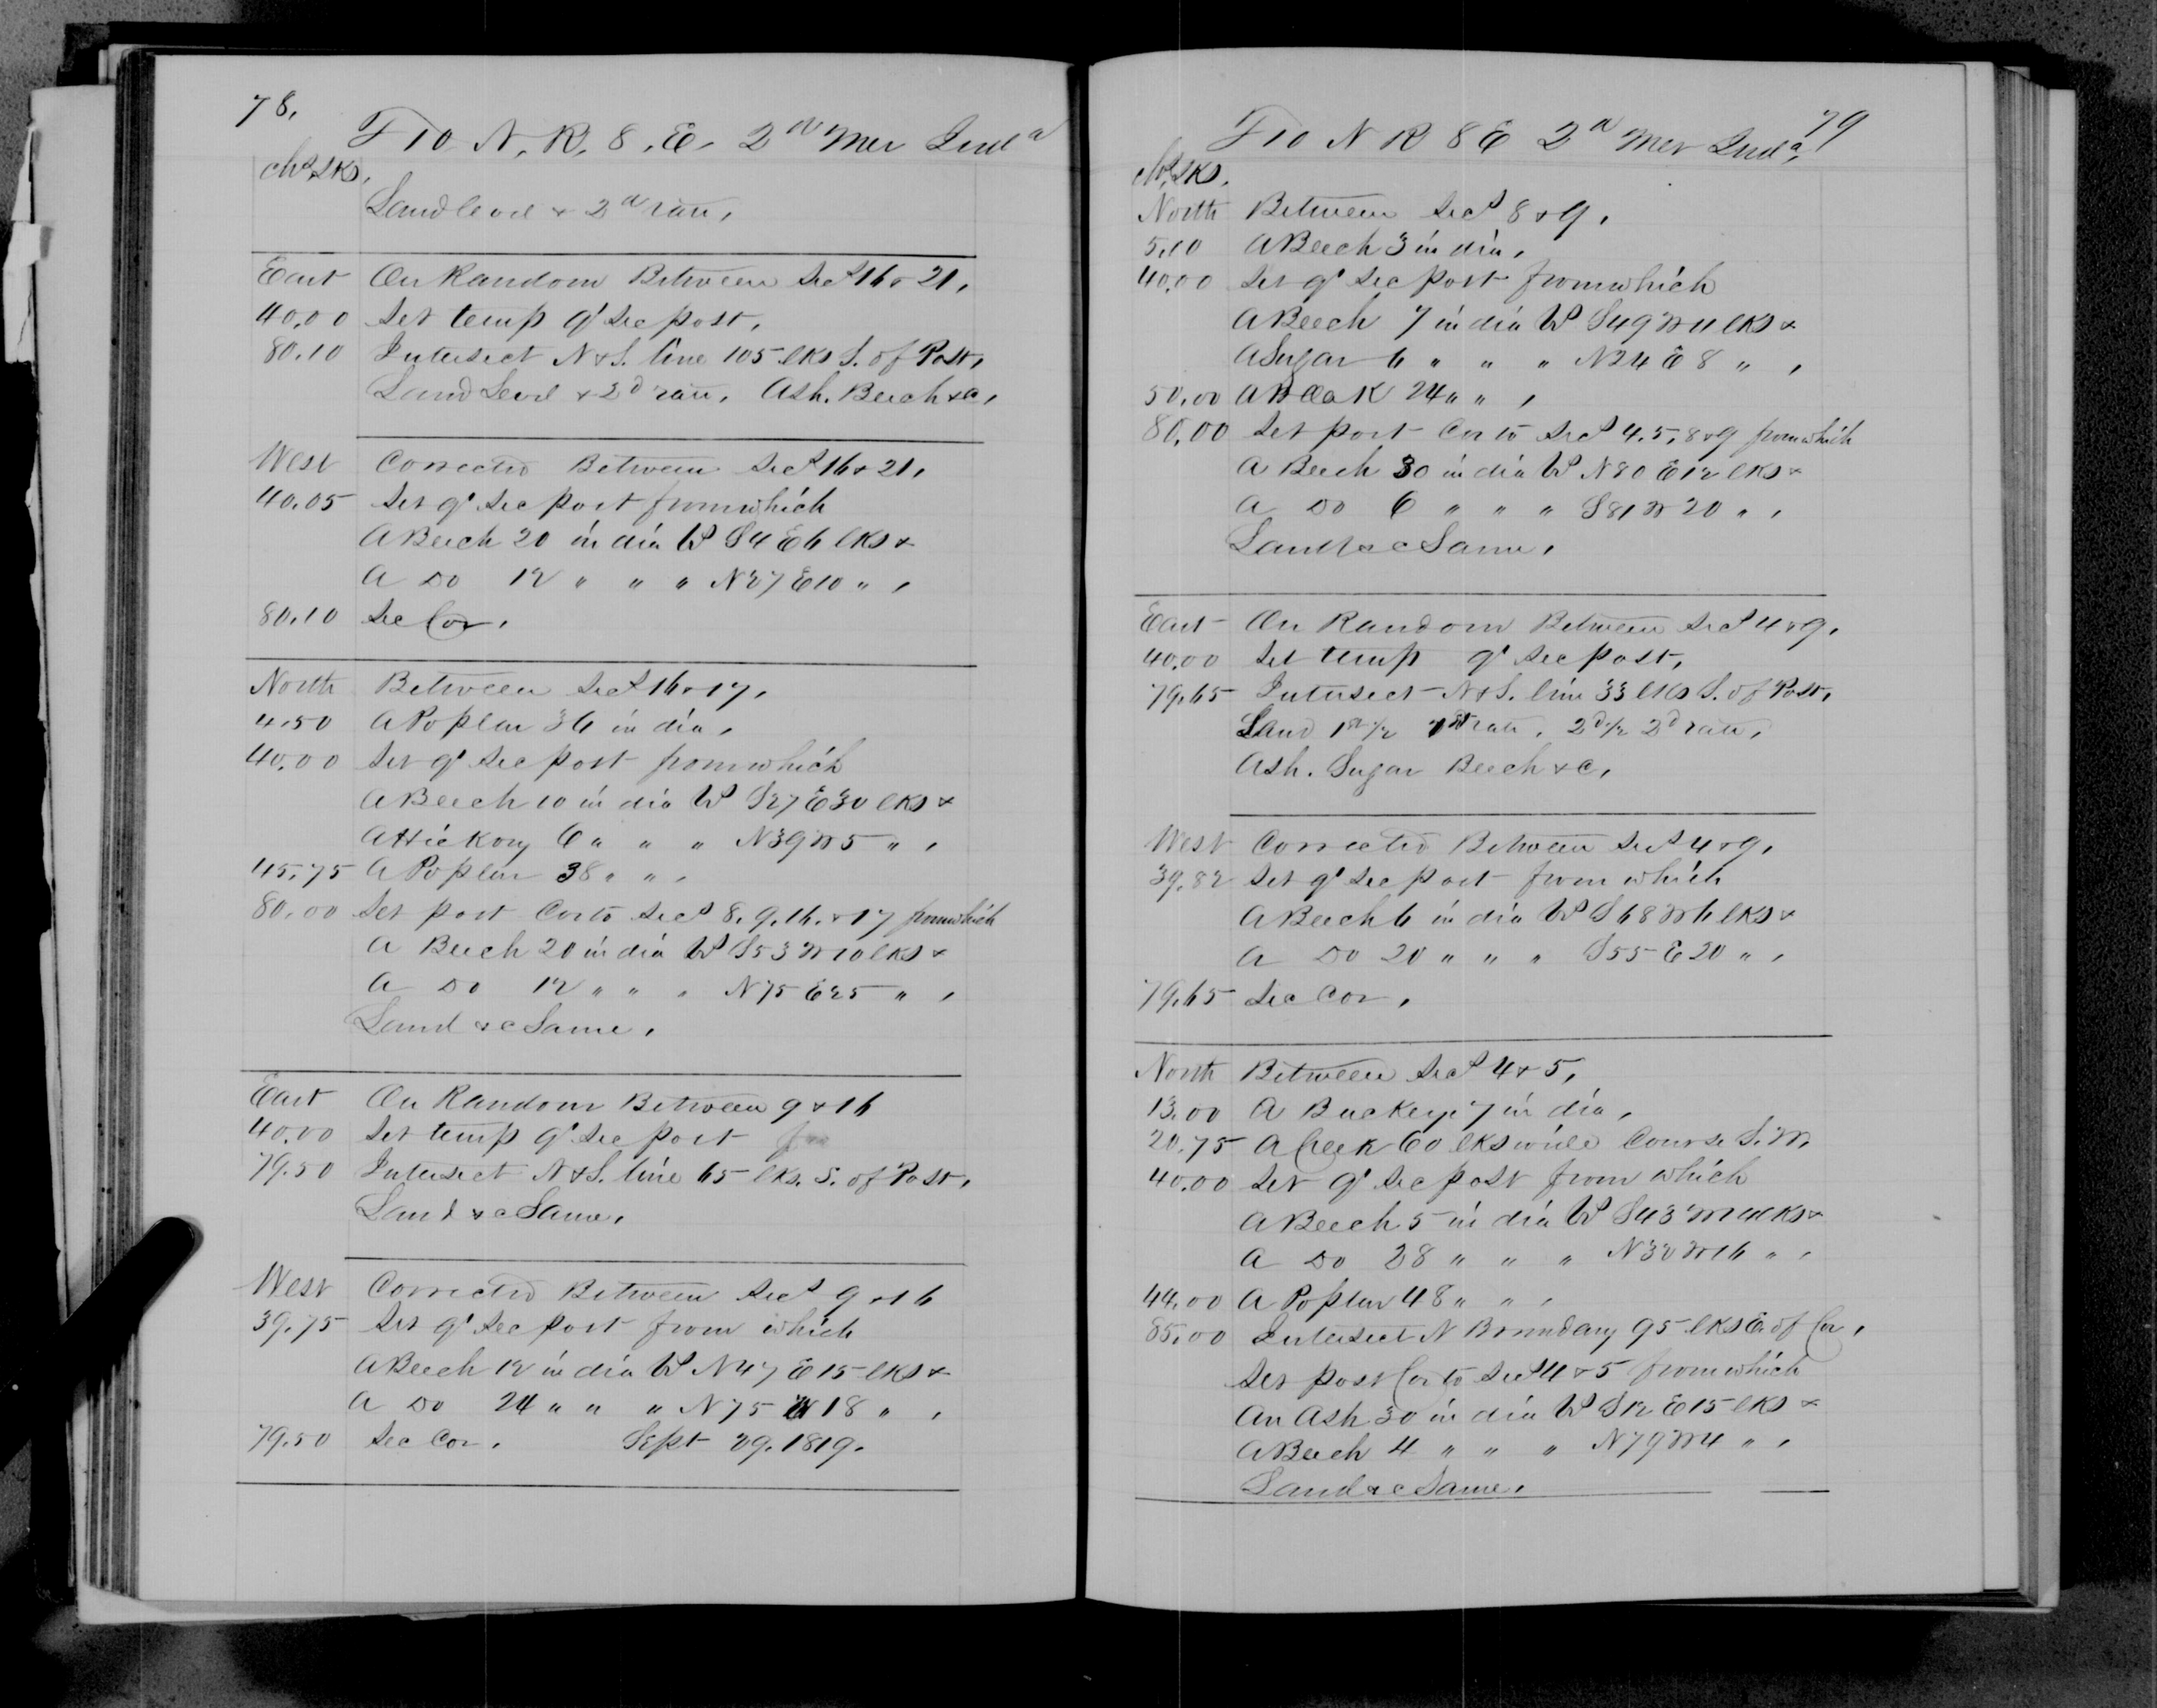 78.
T 10 N. R. 8. E. 2nd Mer Inda
Chs. Lks.
Land level & 2nd rate.
East On Random Between Secs 16 & 21.
40.00 Set temp qr Sec post.
80.10 Intersect N & S. line 105 lks S. of Post.
Land Level & 2d rate. Ash. Beech &c.
West Corrected Between Secs 16 & 21.
40.05 Set qr Sec post from which
A Beech 20 in dia W S4 E6 lks &
A Do 12 " " " N27 E10 " .
80.10 Sec Cor.
North Between Secs 16 & 17.
4.50 A Poplar 36 in dia.
40.00 Set qr Sec post from which
A Beech 10 in dia W S27 E30 lks &
A Hickory 6 " " " N39 W5 " .
45.75 A Poplar 38 " " .
80.00 Set post Cor to Secs 8. 9. 16. & 17 from which
A Beech 20 in dia W S53 W10 lks &
A Do 12 " " " N75 E25 " .
Land &c Same.
East On Random Between 9 & 16
40.00 Set temp qr Sec post
79.50 Intersect N & S. line 65 lks. S. of Post.
Land &c Same.
West Corrected Between Secs 9 & 16
39.75 Set qr Sec post from which
A Beech 12 in dia W N47 E15 lks &
A Do 24 " " " N75 W 18 " .
79.50 Sec Cor. Sept 29. 1819.
79
T 10 N R 8 E 2d Mer Inda.
Chs. Lks.
North Between Secs 8 & 9.
5.10 A Beech 3 in dia.
40.00 Set qr Sec post from which
A Beech 7 in dia W S49 W11 lks &
A Sugar 6 " " " N24 E 8 " .
50.00 A B Oak 24 " " .
80.00 Set post Cor to Secs 4. 5. 8 & 9 from which
A Beech 30 in dia W N80 E12 lks &
A Do 6 " " " S81 W 20 " .
Land &c Same.
East On Random Between Secs 4 & 9.
40.00 Set temp qr Sec post.
79.65 Intersect N & S. line 33 lks S. of Post.
Land 1st 1/2 1st rate. 2d 1/2 2d rate.
Ash. Sugar Beech &c.
West Corrected Between Secs 4 & 9.
39.82 Set qr Sec post from which
A Beech 6 in dia W S68 W6 lks &
A Do 20 " " " S55 E 20 " .
79.65 Sec Cor.
North Between Secs 4 & 5.
13.00 A Buckeye 7 in dia.
20.75 A Creek 60 lks wide Course S. W.
40.00 Set qr Sec post from which
A Beech 5 in dia W S43 W4 lks &
A Do 28 " " " N32 W16 " .
44.00 A Poplar 48 " " .
85.00 Intersect N Boundary 95 lks E. of Cor.
Set post Cor to Secs 4 & 5 from which
An Ash 30 in dia W S12 E15 lks &
A Beech 4 " " " N79 W4 " .
Land &c Same.